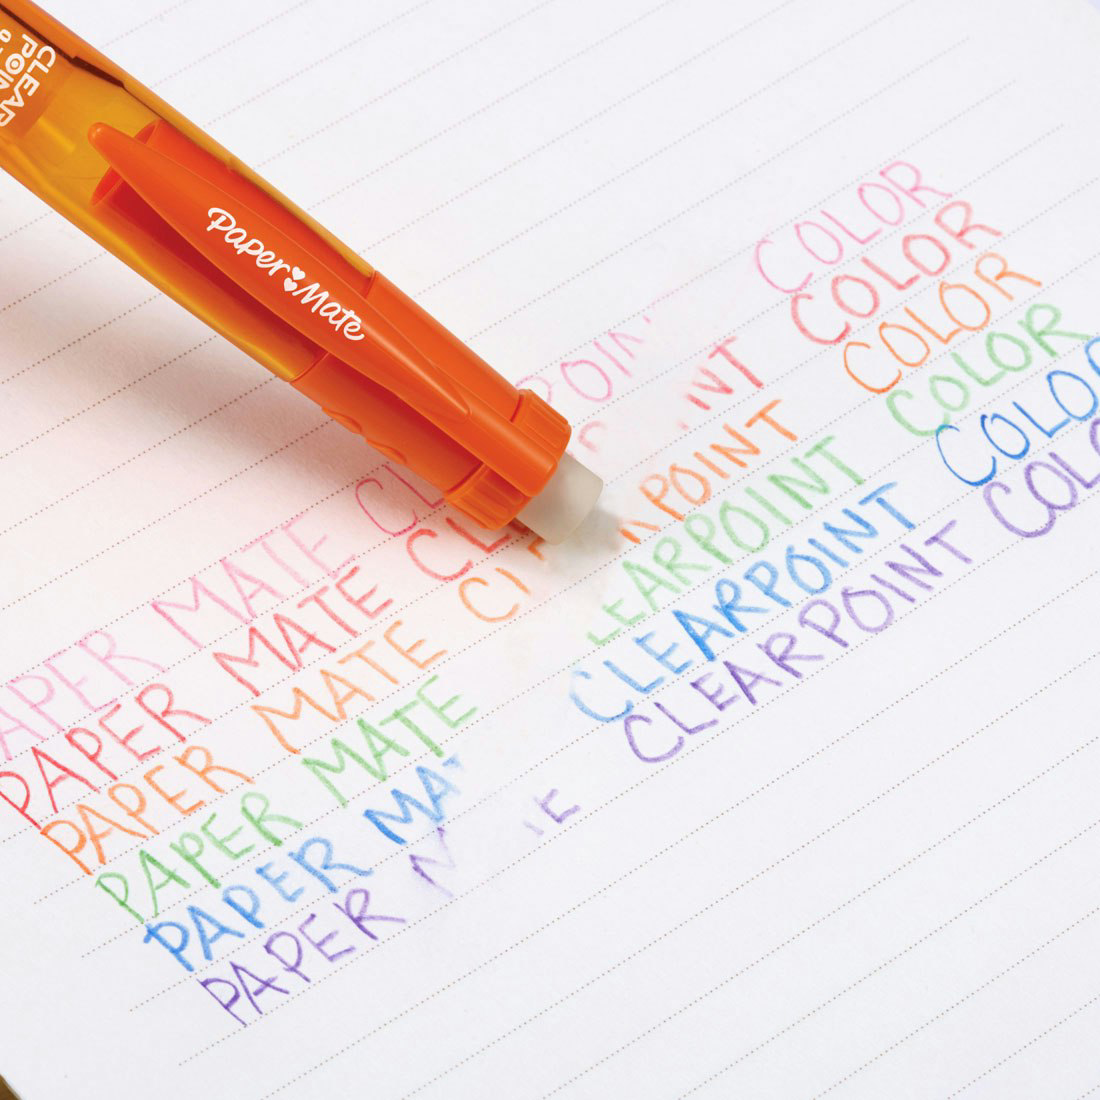 CLEAR
POIN
0.
Paper Mate
APER MATE CL POIN COLOR
PAPER MATE CL NT COLOR
PAPER MATE CL POINT COLOR
PAPER MATE LEARPOINT COLOR
PAPER MA CLEARPOINT COLO
PAPER M IE CLEARPOINT COLO